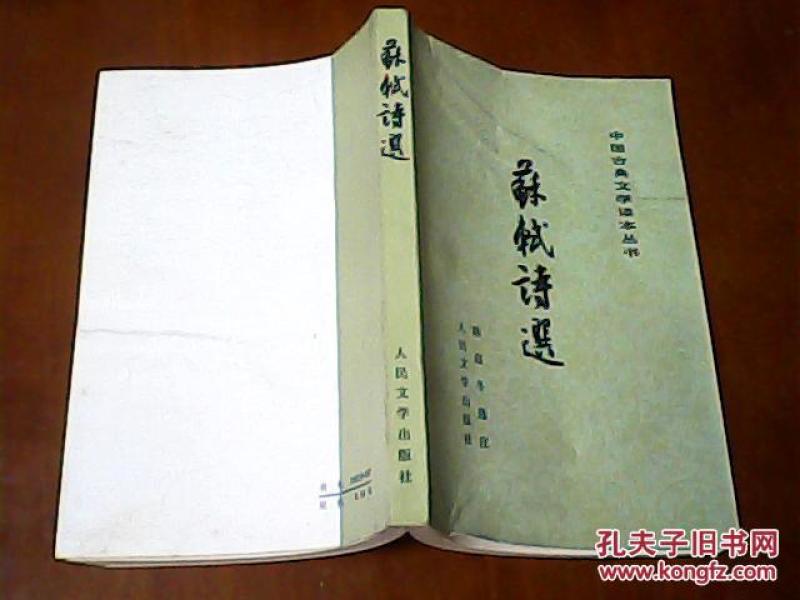 中国古典文学读本丛书
蘇軾詩選
陈迩冬选注
人民文学出版社
蘇軾詩選
人民文学出版社
孔夫子旧书网
www.kongfz.com